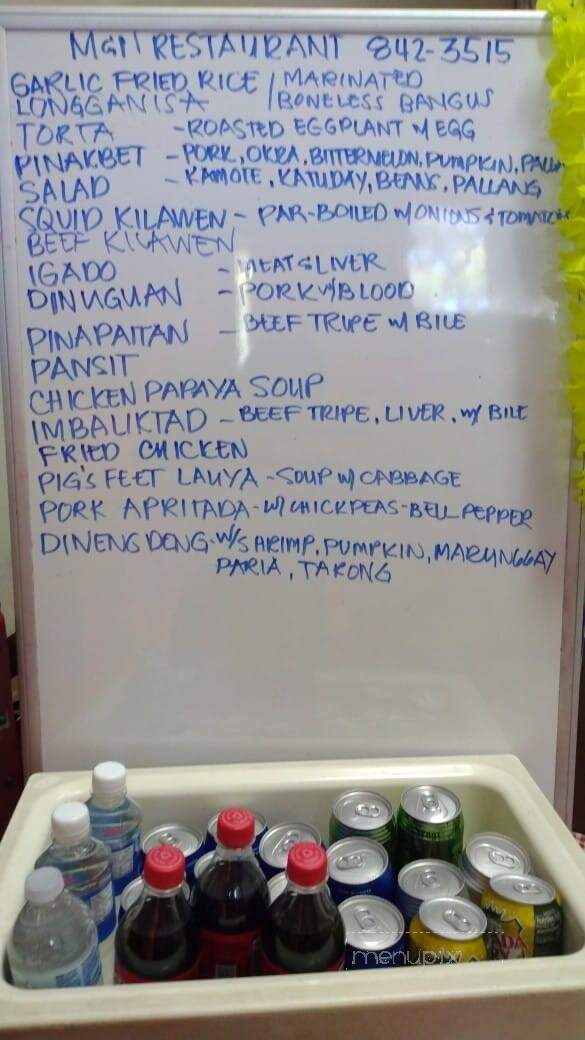 MGM RESTAURANT 842-3515
GARLIC FRIED RICE / MARINATED
LONGGANISA / BONELESS BANGUS
TORTA - ROASTED EGGPLANT W EGG
PINAKBET - PORK, OKRA, BITTERMELON, PUMPKIN,
SALAD - KAMOTE, KATUDAY, BEANS, PALLANG
SQUID KILAWEN - PAR-BOILED W/ONIONS & TOMATOES
BEEF KILAWEN
IGADO - MEAT & LIVER
DINUGUAN - PORK W/BLOOD
PINAPAITAN - BEEF TRIPE W/ BILE
PANSIT
CHICKEN PAPAYA SOUP
IMBALIKTAD - BEEF TRIPE, LIVER, W/ BILE
FRIED CHICKEN
PIG'S FEET LAUYA - SOUP W/ CABBAGE
PORK APRITADA - W/ CHICKPEAS - BELL PEPPER
DINENGDENG - W/SHRIMP, PUMPKIN, MARUNGGAY
PARIA, TARONG
menupix